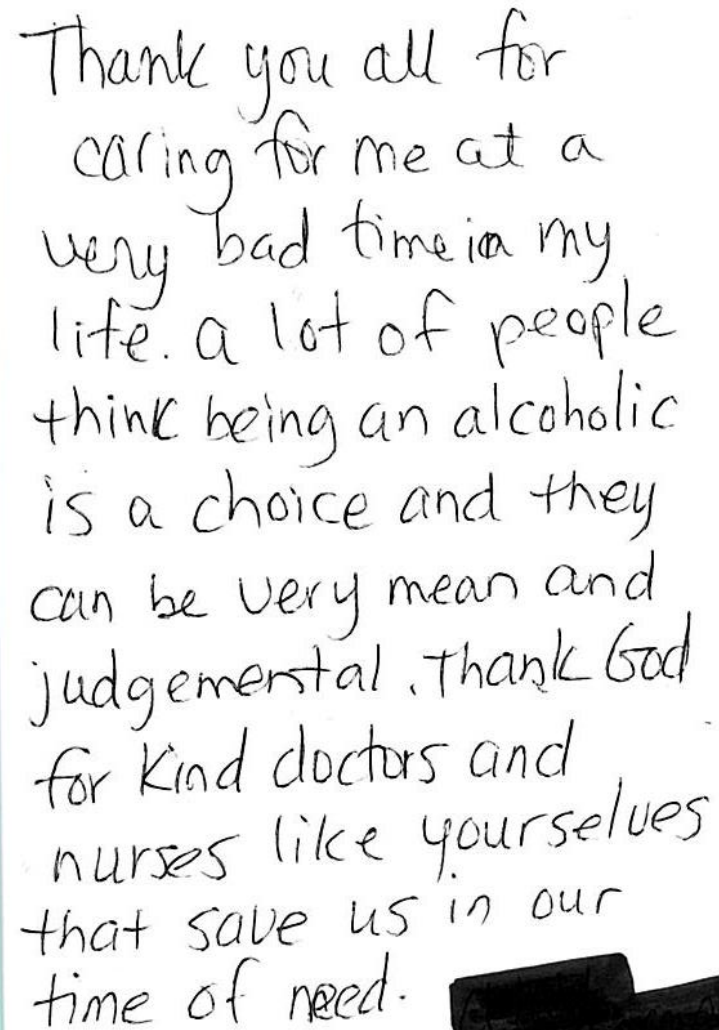 Thank you all for
caring for me at a
very bad time in my
life. a lot of people
think being an alcoholic
is a choice and they
can be very mean and
judgemental. Thank God
for kind doctors and
nurses like yourselves
that save us in our
time of need.